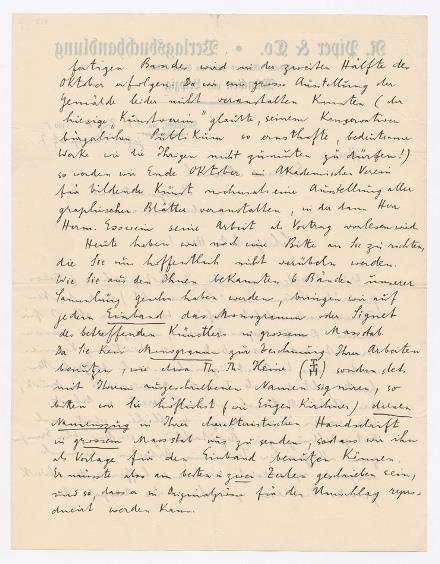 R. Piper & Co. • Verlagsbuchhandlung
fertigen Bandes wird in der zweiten Hälfte des
Oktober erfolgen. Da wir eine grosse Ausstellung der
Gemälde leider nicht veranstalten konnten (der
hiesige „Kunstverein" glaubte, seinem Konservativen
bürgerlichen Publikum so ernsthafte, bedeutsame
Werke wie die Ihrigen nicht zumuten zu dürfen!)
so werden wir Ende Oktober im Akademischen Verein
für bildende Kunst nochmals eine Ausstellung aller
graphischen Blätter veranstalten, in der dann Herr
Herm. Esswein seine Arbeit als Vortrag vorlesen wird.
Heute haben wir noch eine Bitte an Sie zu richten,
die Sie uns hoffentlich nicht verübeln werden.
Wie Sie aus den Ihnen bekannten 6 Bänden unserer
Sammlung gesehen haben werden, bringen wir auf
jedem Einband das Monogramm oder Signet
des betreffenden Künstlers in grossem Massstab
Da Sie kein Monogramm zur Zeichnung Ihrer Arbeiten
benützen, wie etwa Th. Th. Heine ( ) sondern stets
mit Ihrem ausgeschriebenen Namen signieren, so
bitten wir Sie höflichst (wie Eugen Kirchner) diesen
Namenszug in Ihrer charakteristischen Handschrift
in grossem Massstab uns zu senden, sodass wir ihn
als Vorlage für den Einband benützen können.
Er müsste also am besten in zwei Zeilen geschrieben sein,
und so, dass er in Originalgrösse für den Umschlag repro-
duciert werden kann.